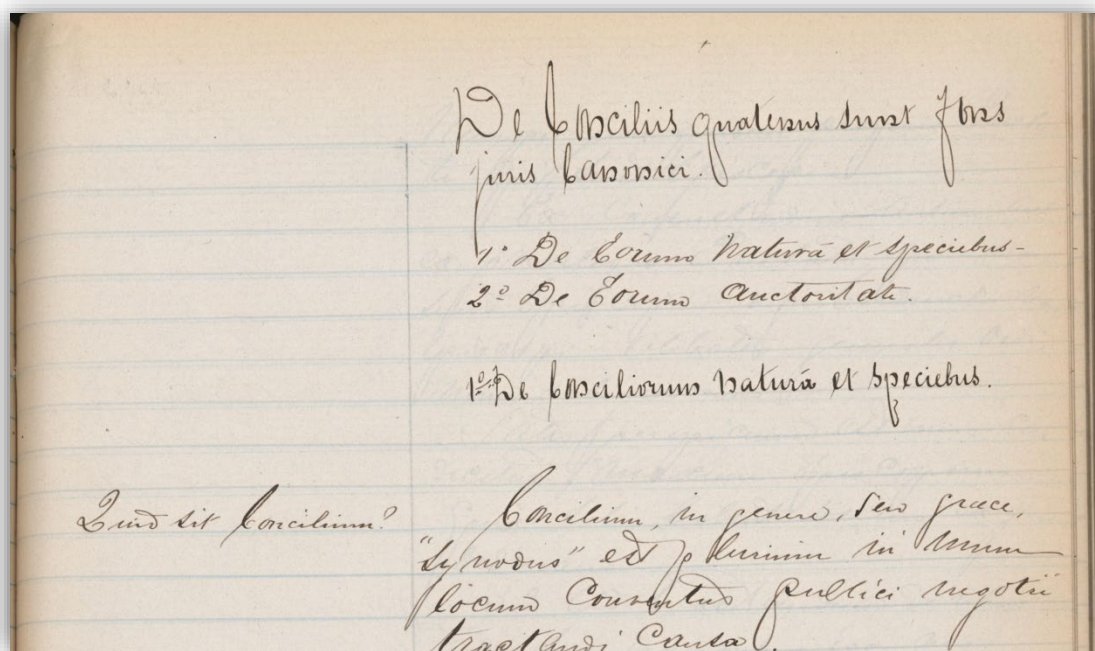 De Conciliis quatenus sunt fons
juris Canonici.
1º De Eorum Naturâ et speciebus-
2º De Eorum Auctoritate.
1º De Conciliorum naturâ et speciebus.
Quid sit Concilium?
Concilium, in genere, seu græce,
"Synodus" est plurium in unum
locum Conventus publici negotii
tractandi Causa.